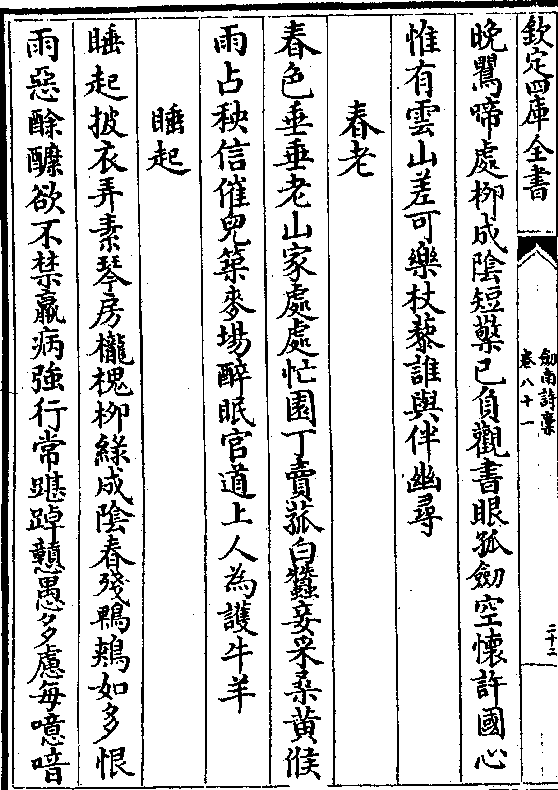 欽定四庫全書
劍南詩藁
卷八十一
二十二
晚鶯啼處栁成陰短檠已負觀書眼孤劒空懷許國心
惟有雲山差可樂杖藜誰與伴幽尋
春老
春色垂垂老山家處處忙園丁賣菰白蠶妾采桑黄候
雨占秧信催兒築麥場醉眠官道上人為護牛羊
睡起
睡起披衣弄素琴房櫳槐栁緑成陰春殘鵯鶋如多恨
雨惡酴醾欲不禁羸病強行常踸踔戇愚多慮每噫喑